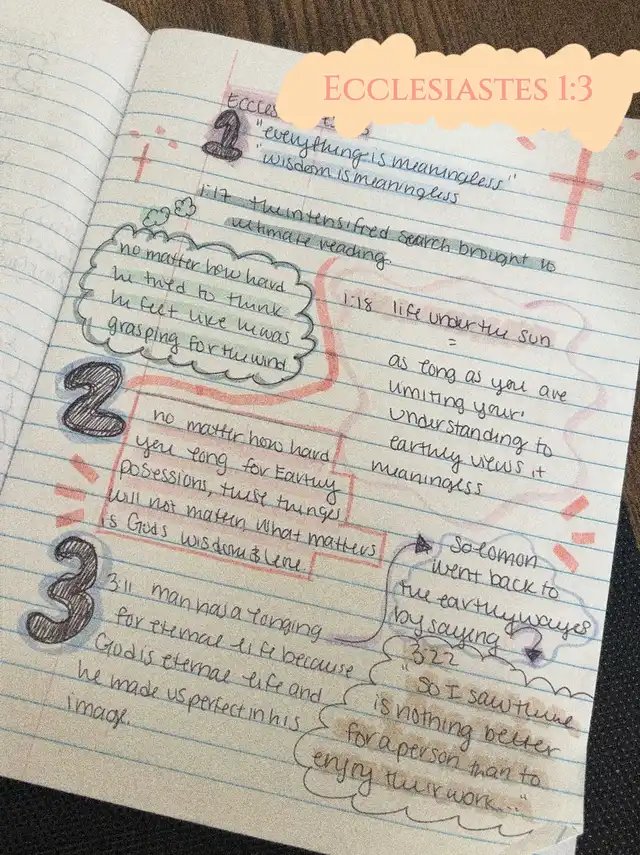 ECCLESIASTES 1:3
Eccles
1
"everything is meaningless"
"wisdom is meaningless
1:17 the intensified search brought to
ultimate reading
no matter how hard
he tried to think
he felt like he was
grasping for the wind
1:18 life under the sun
=
as long as you are
limiting your
understanding to
earthly views it
meaningless
2
no matter how hard
you long for Earthly
possessions, these things
will not matter. What matters
is Gods wisdom & love
3
3:11 man has a longing
for eternal life because
God is eternal life and
he made us perfect in his
image.
Solomon
went back to
the earthly wayes
by saying
3:22
"So I saw there
is nothing better
for a person than to
enjoy their work..."